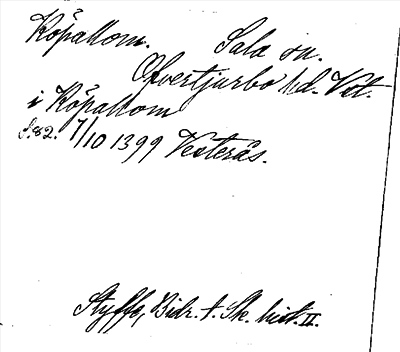 Köpaltom. Sala sn.
Öfvertjurbo hd. Vst.
i Köpaltom
S.82. 7/10 1399 Vesterås.
Styffe, Bidr. t. Sk. hist. II.